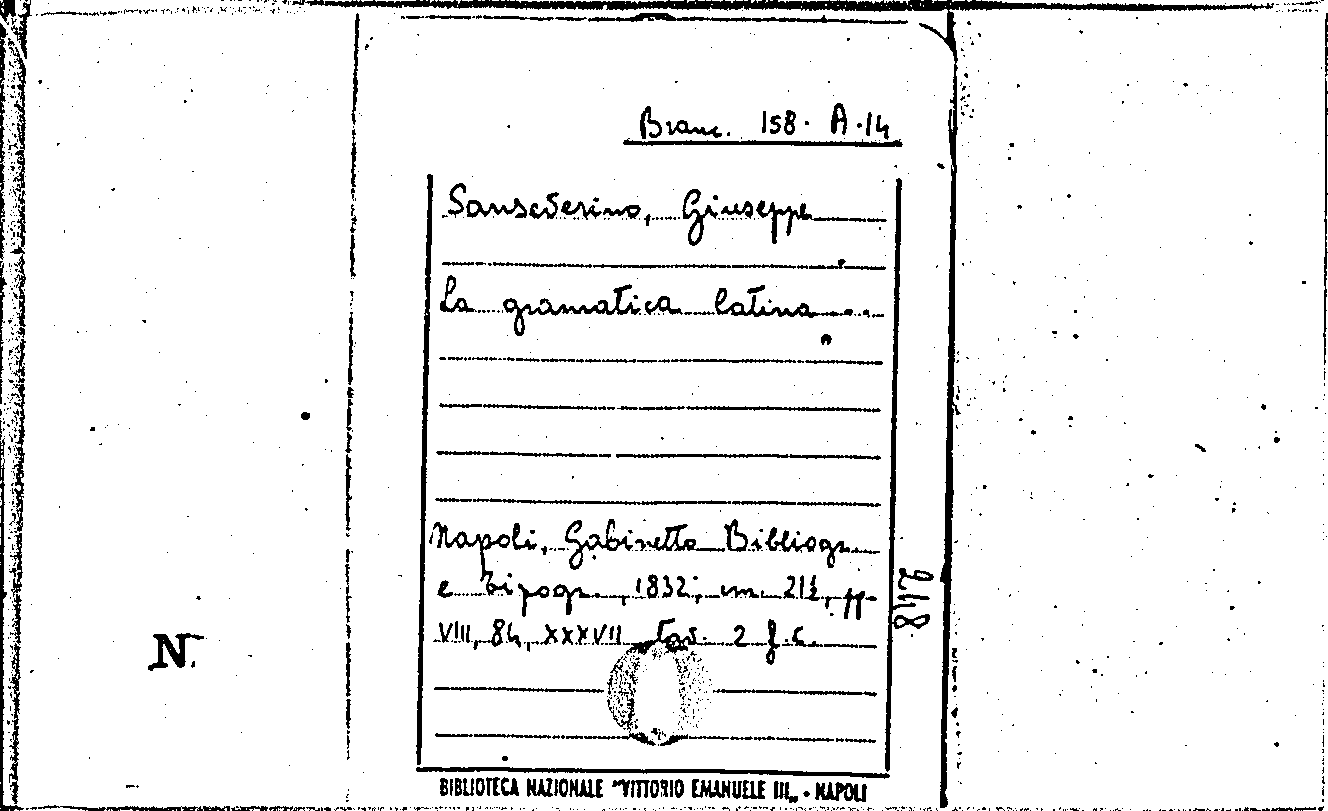 Branc. 158. A. 14
Sanseverino, Giuseppe
La gramatica latina ...
Napoli, Gabinetto Bibliogr.
e Tipogr., 1832; cm. 21½, pp.
VIII, 84, XXXVII tav. 2 f.c.
248
N.
BIBLIOTECA NAZIONALE "VITTORIO EMANUELE III„ - NAPOLI